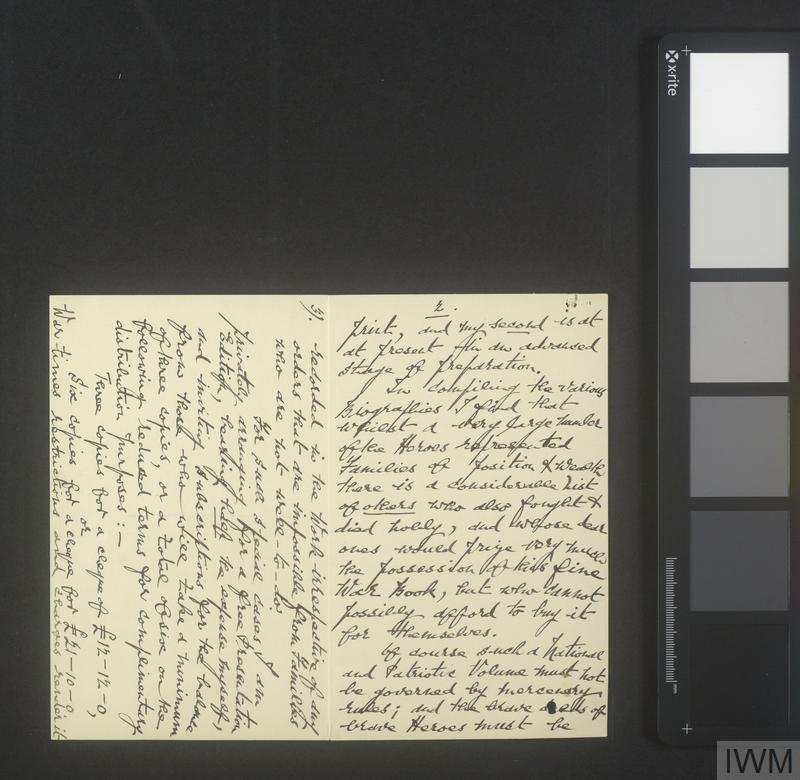 2.
print, and my second is at
at present in an advanced
stage of preparation.
In compiling the various
Biographies I find that
whilst a very large number
of the Heroes represented
Families of Position & Wealth
there is a considerable list
of others who also fought &
died nobly, and whose dear
ones would prize very much
the possession of this fine
War Book, but who cannot
possibly afford to buy it
for themselves.
Of course such a National
and Patriotic Volume must not
be governed by mercenary
rules; and the brave deeds of
brave Heroes must be
3). recorded in the Work irrespective of any
orders that are impossible from Families
who are not well-to-do
For such special cases I am
privately arranging for a free Presentation
Edition, bearing half the expense myself,
and inviting Subscriptions for the balance
from those who will take a minimum
of three copies, or a total of six on the
following reduced terms for complimentary
distribution purposes:—
Three copies for a cheque of £12-12-0,
or
Six copies for a cheque for £21-10-0
War-times restrictions and charges render it
x·rite
mm
IWM